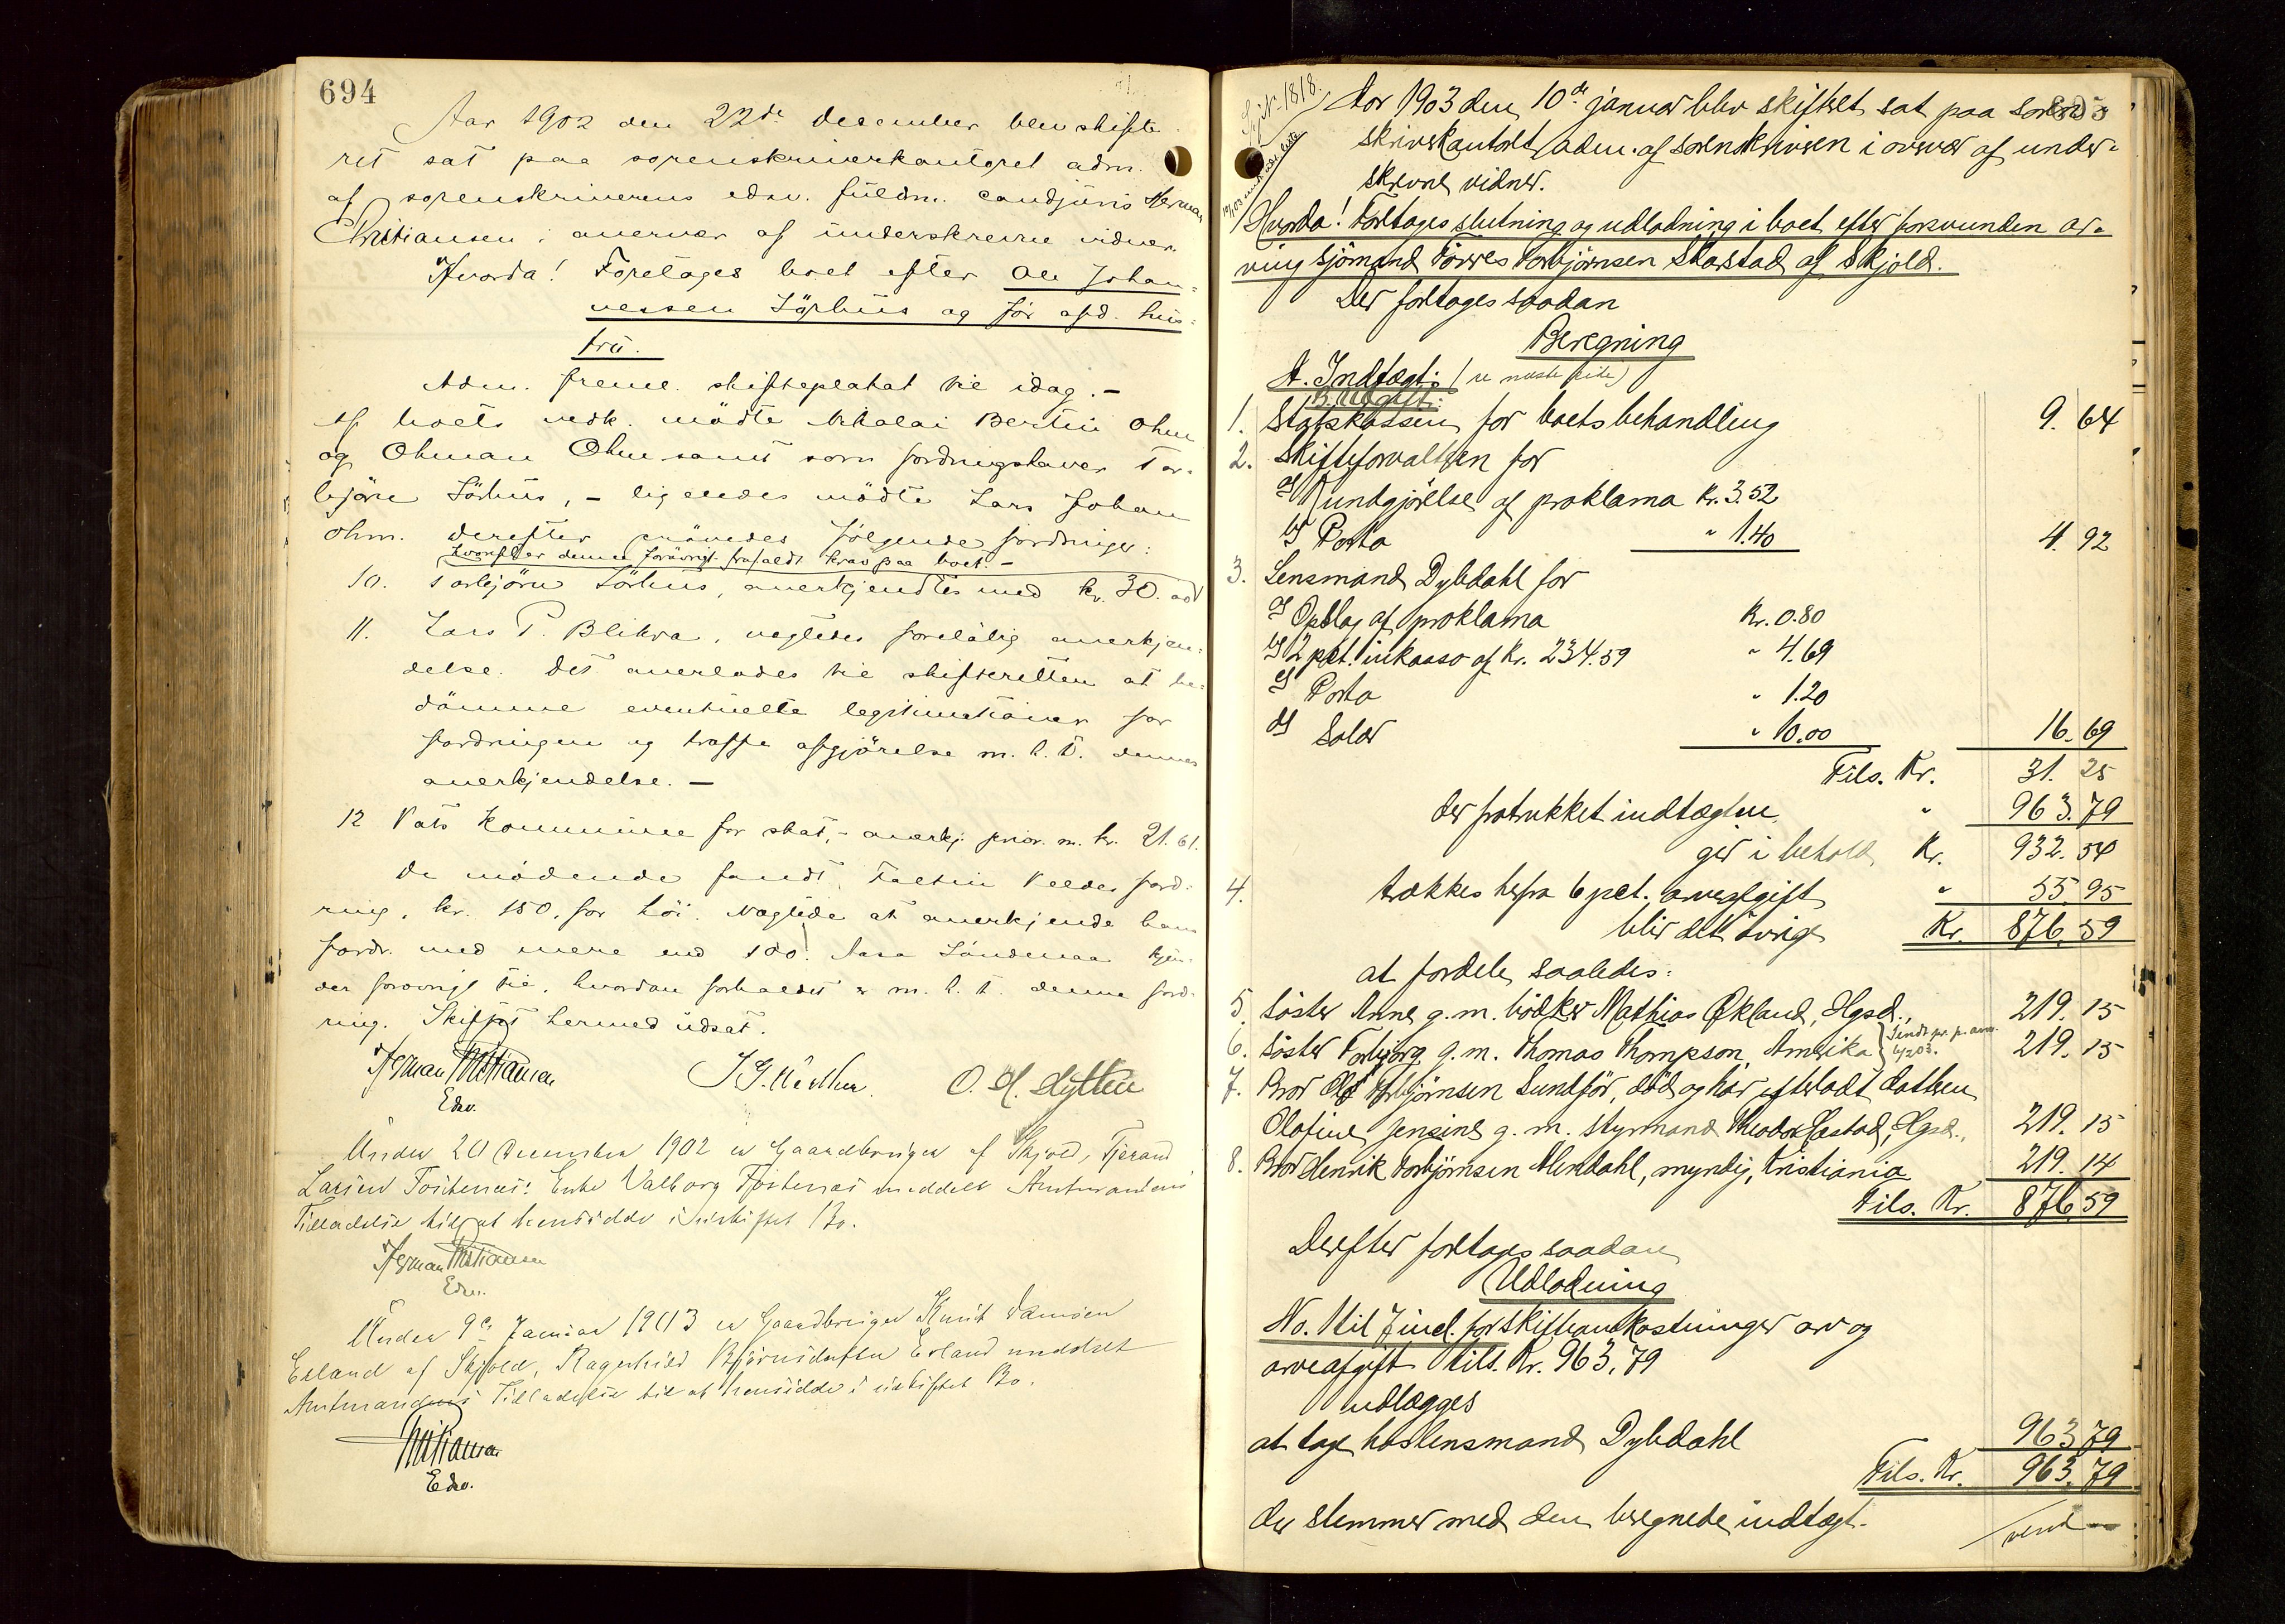 694
Aar 1902 den 22de december blev skifte
ret sat paa sorenskriverkontoret adm.
af sorenskriverens edsv. fuldm. cand juris Herman
Christiansen i overvær af underskrevne vidner.
Hvorda! Foretages boet efter Ole Johan-
nessen Sörhus og för afd. hus-
tru.
Adm. freml. skifteplakat til idag. —
Af boets vedk. mödte Nikolai Bertin Ohm
og Ohman Ohm samt som fordringshaver Tor-
björn Sörhus, – ligeledes mödte Lars Johan
Ohm. Derefter prövedes fölgende fordringer:
hvorefter denne forövrigt frafaldt krav paa boet. –
10. Torbjörn Sörhus, anerkjendtes med kr. 30.00
11. Lars P. Blikra, negtedes forelöbig anerkjen-
delse. Det overlodes til skifteretten at be-
dömme eventuelle legitimationer for
fordringen og træffe afgjörelse m. h. t. dennes
anerkjendelse. —
12 Vats kommune for skat, – anerkj. prior. m. kr. 21.61.
De mödende fandt Velde ford-
ring, kr. 150, for höi. Negtede at anerkjende hans
fordr. med mere end 100. kjen-
der forövrigt til, hvordan forholdet er m. h. t. denne ford-
ring. Skiftet hermed udsat.
Herman Christiansen
Edsv.
O. H. Lytten
Under 20 December 1902 er Gaardbruger af Skjold, Tjerand
Larsen Tostenes' Enke Valborg Tostenes meddelt Amtmandens
Tilladelse til at hensidde i uskiftet Bo.
Herman Christiansen
Edsv.
Under 9de Januar 1903 er Gaardbruger Knut Samsen
Erland af Skjold, Ragnhild Bjørnsdatter Erland meddelt
Amtmandens Tilladelse til at hensidde i uskiftet Bo.
Christiansen
Edsv.
1818
Aar 1903 den 10de januar blev skifteret sat paa soren-
skriverkontoret, adm. af sorenskriveren i overvær af under-
skrevne vidner.
Hvorda! Foretages slutning og udlodning i boet efter forsvunden ar-
ving sjömand Törres Torbjörnsen Skarstad af Skjold.
Der foretages saadan
Beregning
A. Indtægt: (se næste side)
B. Udgift:
1. Statskassen for boets behandling 9. 64
2. Skifteforvalteren for
a) Kundgjörelse af proklama Kr. 3.52
b) Porto " 1.40 4. 92
3. Lensmand Dybdahl for
a) Opslag af proklama Kr. 0.80
b) 2 pct. inkasso af Kr. 234.59 " 4.69
c) Porto " 1.20
d) Salær " 10.00 16. 69
Tils. Kr. 31. 25
der fratrukket indtægten " 963.79
gir i behold Kr. 932. 54
4. trækkes herfra 6 pct. arveafgift " 55.95
blir det övrige Kr. 876.59
at fordele saaledes:
5. Söster Anne g. m. bödker Mathias Økland, Hgsd., 219. 15
6. Söster Torbjørg g. m. Thomas Thompson, Amerika 219. 15
7. Bror Ole Torbjörnsen Sundför, död og har efterladt datteren
Olafine Jensine g. m. styrmand Theodor Sastad, Hgsd., 219. 15
8. Bror Henrik Torbjörnsen Alendahl, myndig, Kristiania 219. 14
Tils. Kr. 876.59
Derefter foretages saadan
Udlodning
No. 1 til 7 incl. for skifteomkostninger arv og
arveafgift tils. Kr. 963.79
udlægges
at tage hos lensmand Dybdahl 963.79
Tils. Kr. 963.79
der stemmer med den beregnede indtægt.
vend